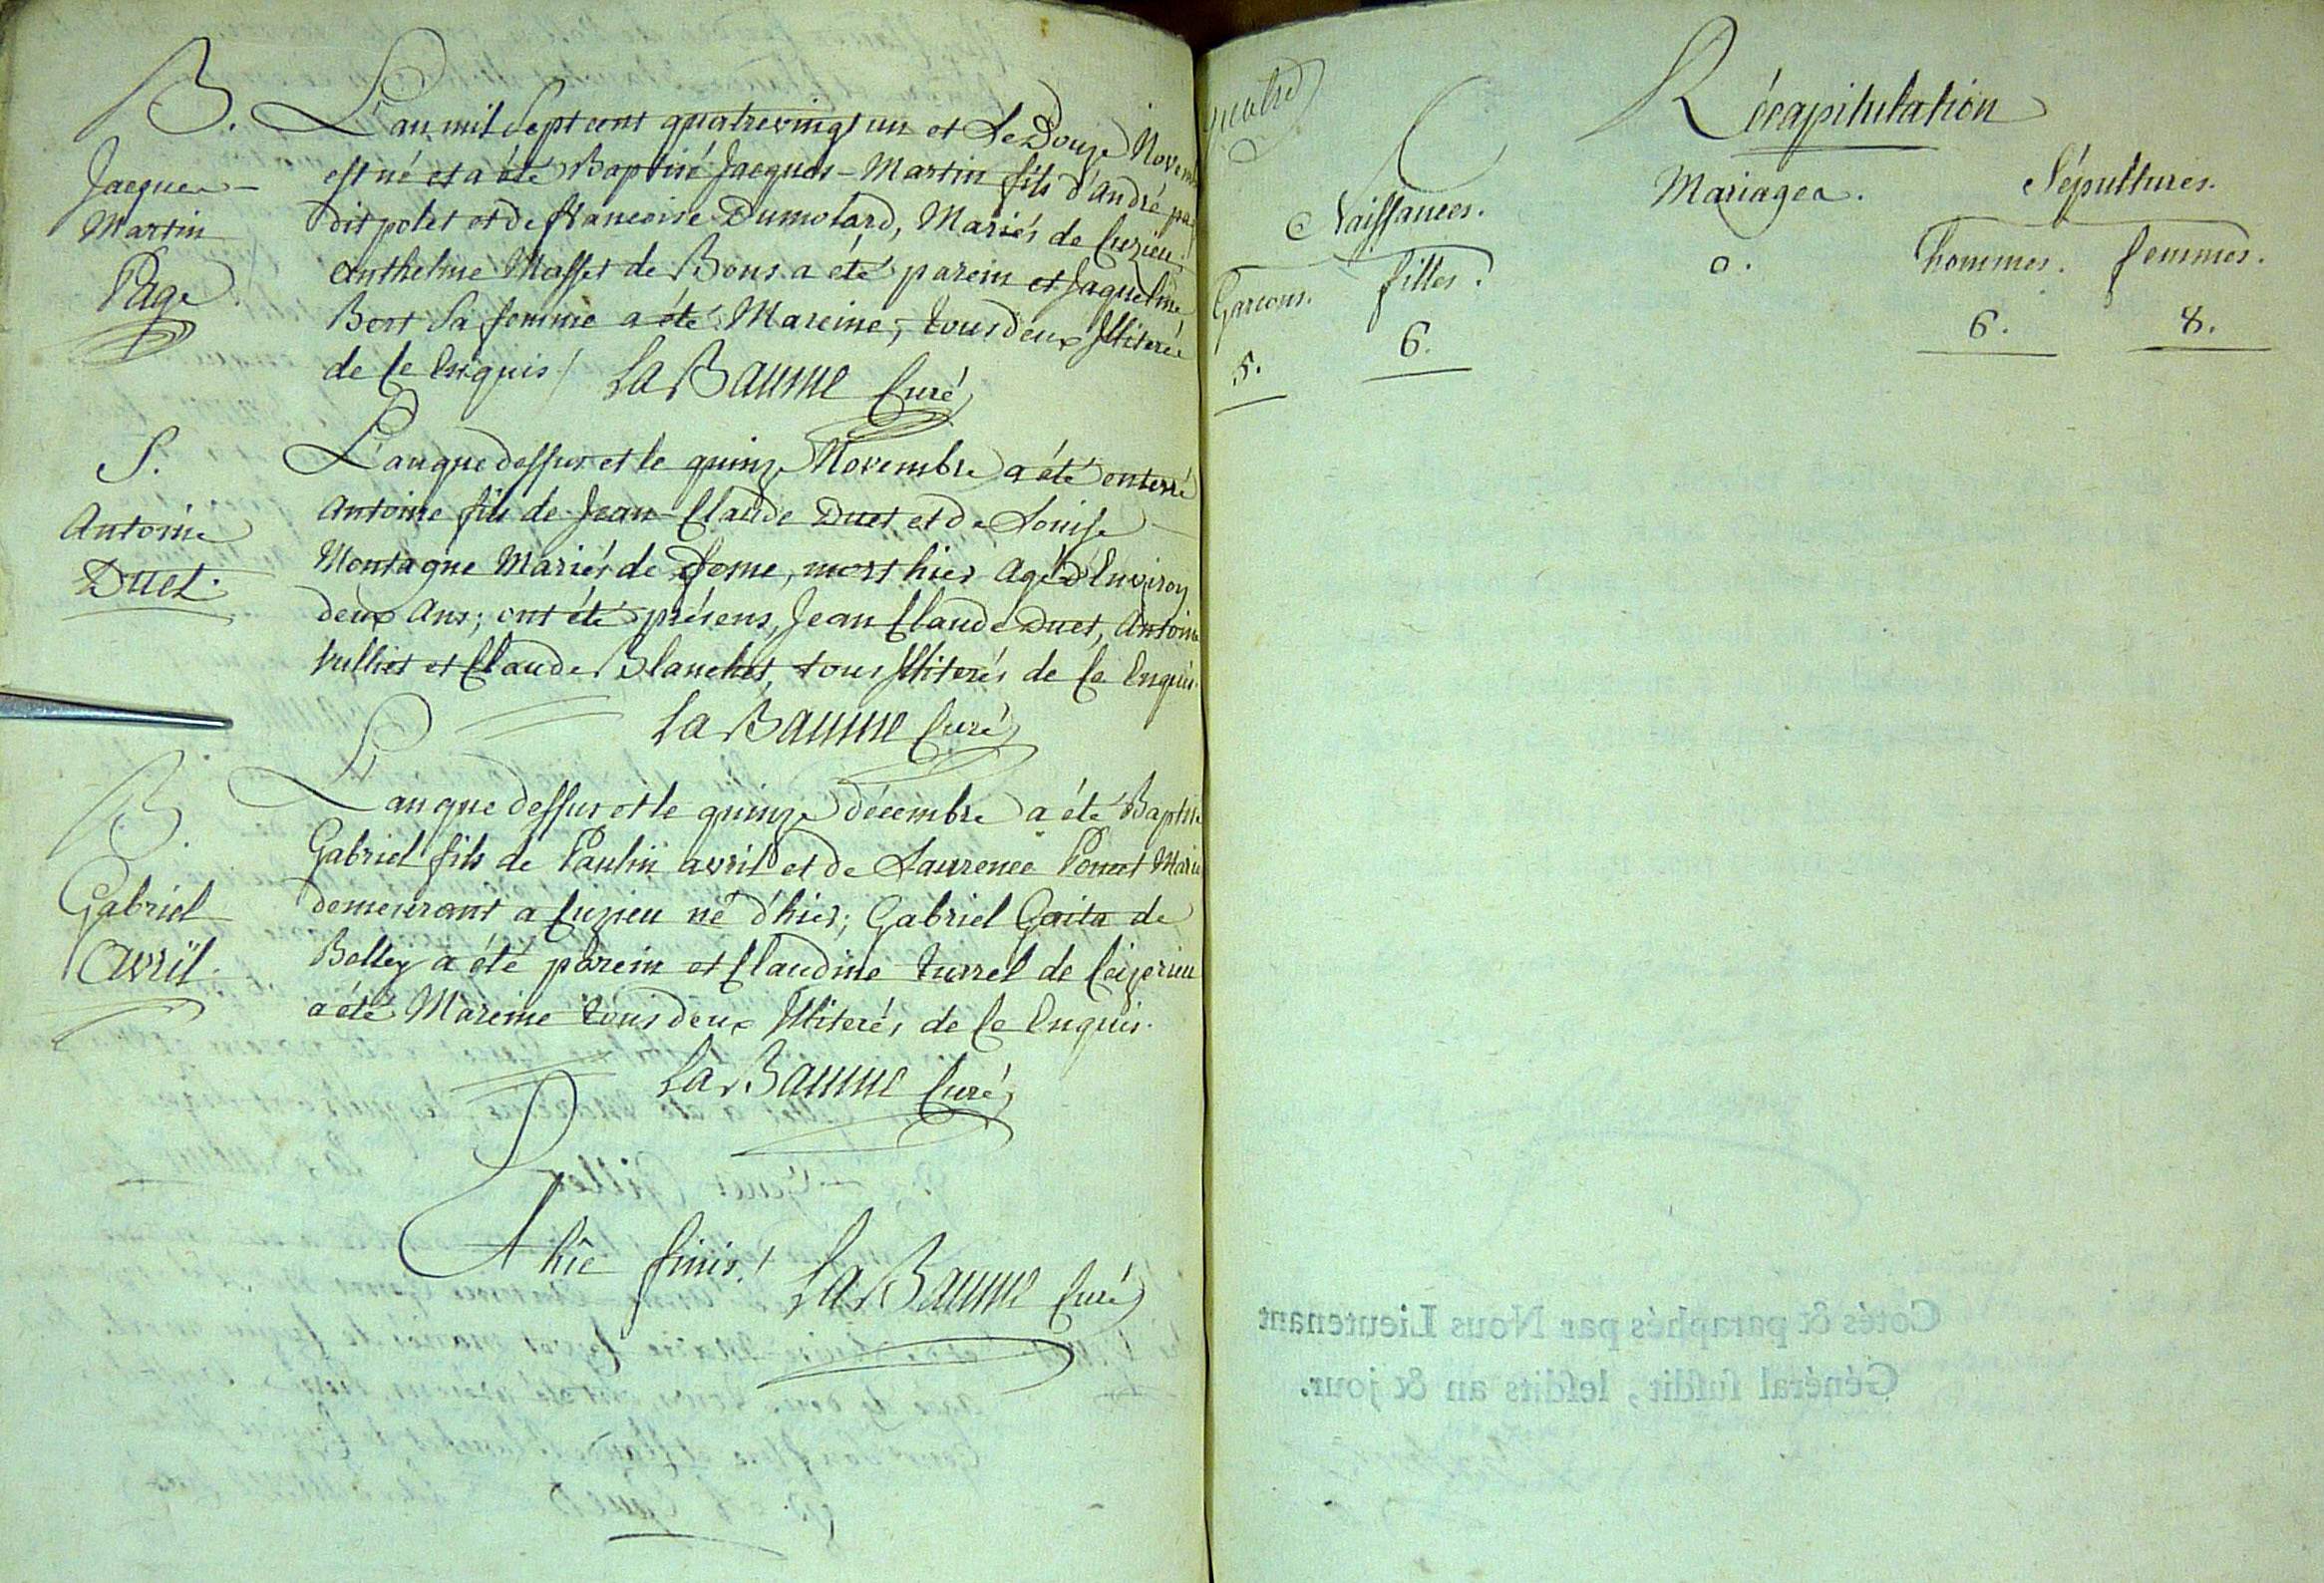 B.
Jacques-
Martin
Page
L'an mil sept cent quatrevingt un et le Douze Novem
est né et a été Baptisé Jacques-Martin fils d'André pa
dit polet et de francoise Dumolard, Mariés de Cuzieu.
Anthelme Masset de Bons a été parein et Jaqueline
Bert sa femme a été Mareine, tous deux Illiteré
de ce Enquis / La Baume Curé
S.
Antoine
Duet.
L'an que dessus et le quinze Novembre a été enterré
Antoine fils de Jean-Claude Duet et de Louise
Montagne Mariés de, mort hier Agé d'Environ
deux Ans; ont été présens, Jean Claude Duet, Antoin
Vulliet et Claude Blanchet, tous Illiterés de ce Enquis.
La Baume Curé
B.
Gabriel
Avril.
L'an que dessus et le quinze décembre a été Baptis
Gabriel fils de Paulin avril et de Laurence Ponet Marié
demeurant a Cuzieu né d'hier; Gabriel Goita de
Belley a été parein et Claudine Turrel de Ceizerieu
a été Mareine tous deux Illiterés de ce Enquis.
La Baume Curé
hîc finis! La Baume Curé
quatre
Récapitulation
Naissances.
Mariages.
Sépultures.
Garcons.
filles.
0.
hommes.
femmes.
5.
6.
6.
8.
Cotés & paraphés par Nous Lieutenant
Général susdit, lesdits an & jour.